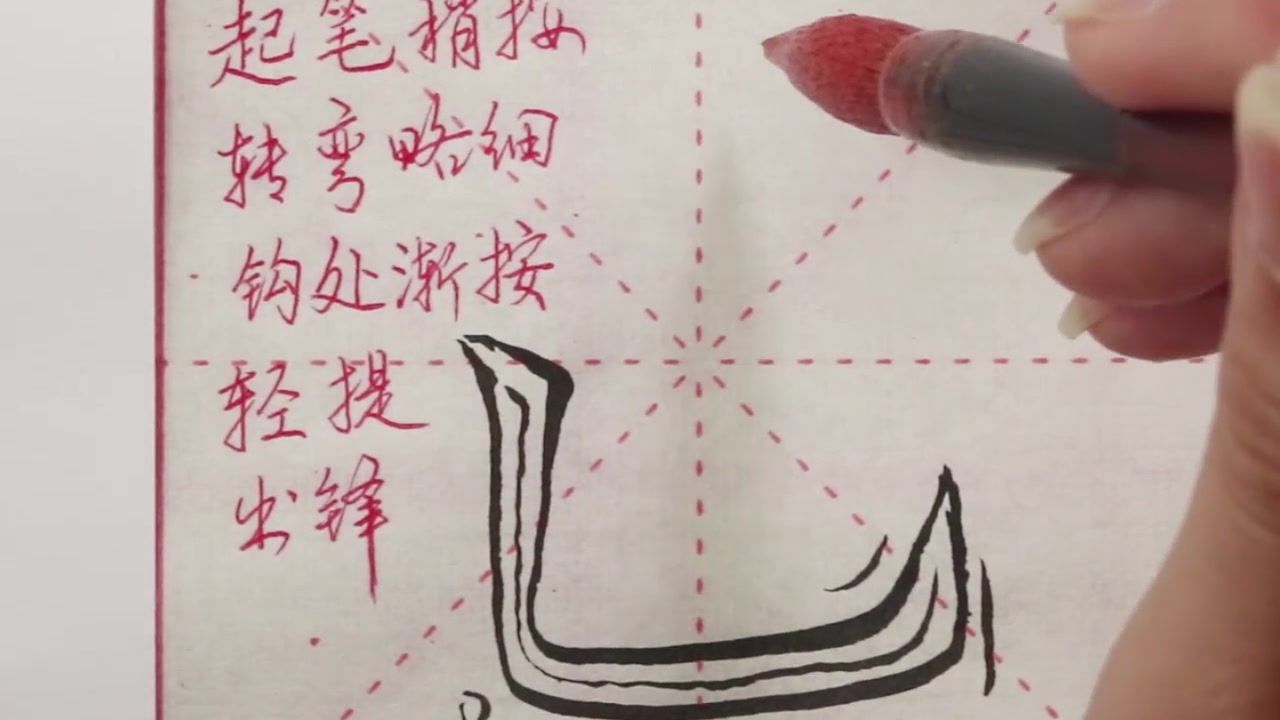 起笔稍按
转弯略细
钩处渐按
轻提
出锋